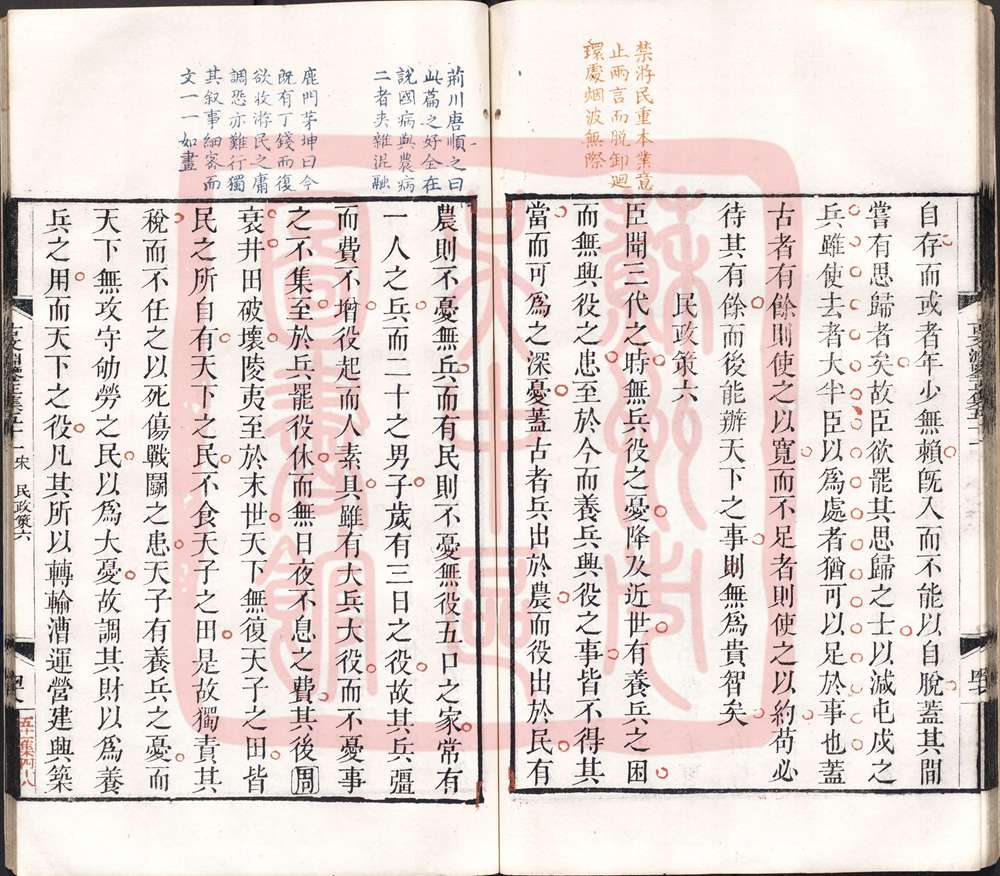 禁游民重本業意
止兩言而脫卸迴
環處烟波無際
自存而或者年少無賴旣入而不能以自脫蓋其間
嘗有思歸者矣故臣欲罷其思歸之士以減屯戍之
兵雖使去者大半臣以爲處者猶可以足於事也蓋
古者有餘則使之以寬而不足者則使之以約苟必
待其有餘而後能辦天下之事則無爲貴智矣
民政策六
臣聞三代之時無兵役之憂降及近世有養兵之困
而無興役之患至於今而養兵興役之事皆不得其
當而可爲之深憂蓋古者兵出於農而役出於民有
荊川唐順之曰
此篇之好全在
說國病與農病
二者夾雜混融
鹿門茅坤曰今
旣有丁錢而復
欲收游民之庸
調恐亦難行獨
其叙事細密而
文一一如畫
農則不憂無兵而有民則不憂無役五口之家常有
一人之兵而二十之男子歲有三日之役故其兵彊
而費不增役起而人素具雖有大兵大役而不憂事
之不集至於兵罷役休而無日夜不息之費其後周
衰井田破壞陵夷至於末世天下無復天子之田皆
民之所自有天下之民不食天子之田是故獨責其
稅而不任之以死傷戰鬭之患天子有養兵之憂而
天下無攻守劬勞之民以爲大憂故調其財以爲養
兵之用而天下之役凡其所以轉輸漕運營建興築
宋 民政策六
五十一集四十八